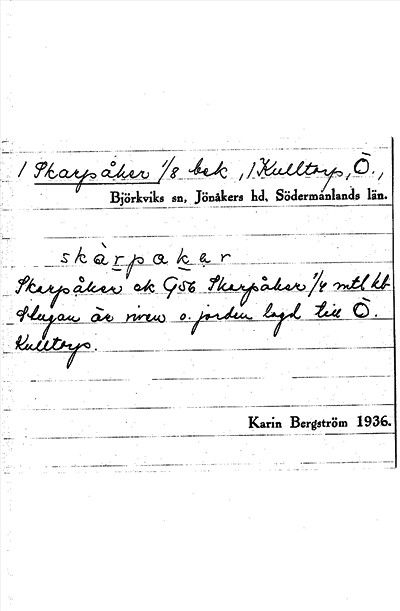 1 Skarpåker 1/8 bsk, 1 Kulltorp, Ö.,
Björkviks sn, Jönåkers hd, Södermanlands län.
skàrpakar
Skarpåker ek G56 Skarpåker 1/4 mtl kb
Stugan är riven o. jorden lagd till Ö.
Kulltorp.
Karin Bergström 1936.